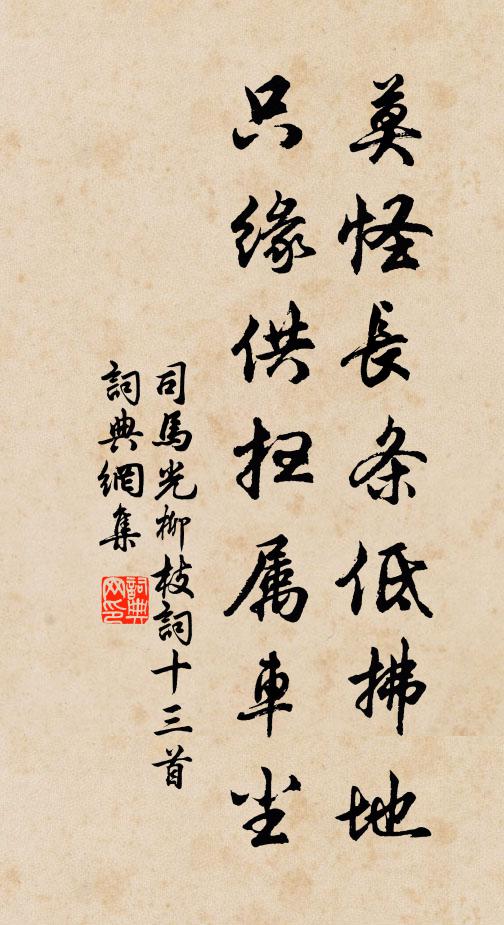 莫怪長条低拂地
只缘供扫属車尘
司馬光柳枝詞十三首
詞典網集
詞典网印